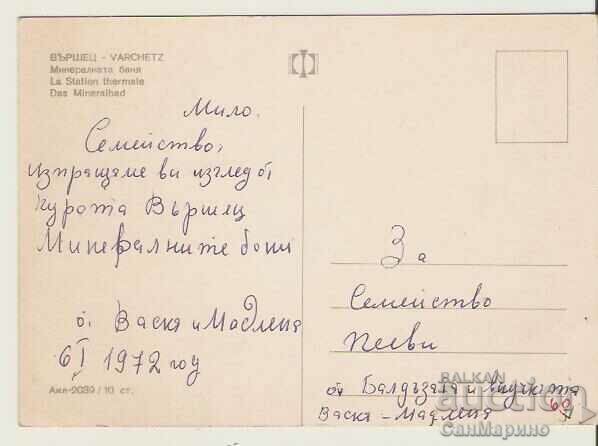 ВЪРШЕЦ - VARCHETZ
Минералната баня
La Station thermale
Das Mineralbad
Мило.
Семейство,
изпращаме ви изглед от
курота Вършец
Минералните бани
от Васкя и Мадлена
6 I 1972 год
Акл-2039 / 10 ст.
За
Семейство
Пееви
от Балдъзата и внуката
Васкя - Мадлена
60
BALKAN
auction
СанМарино